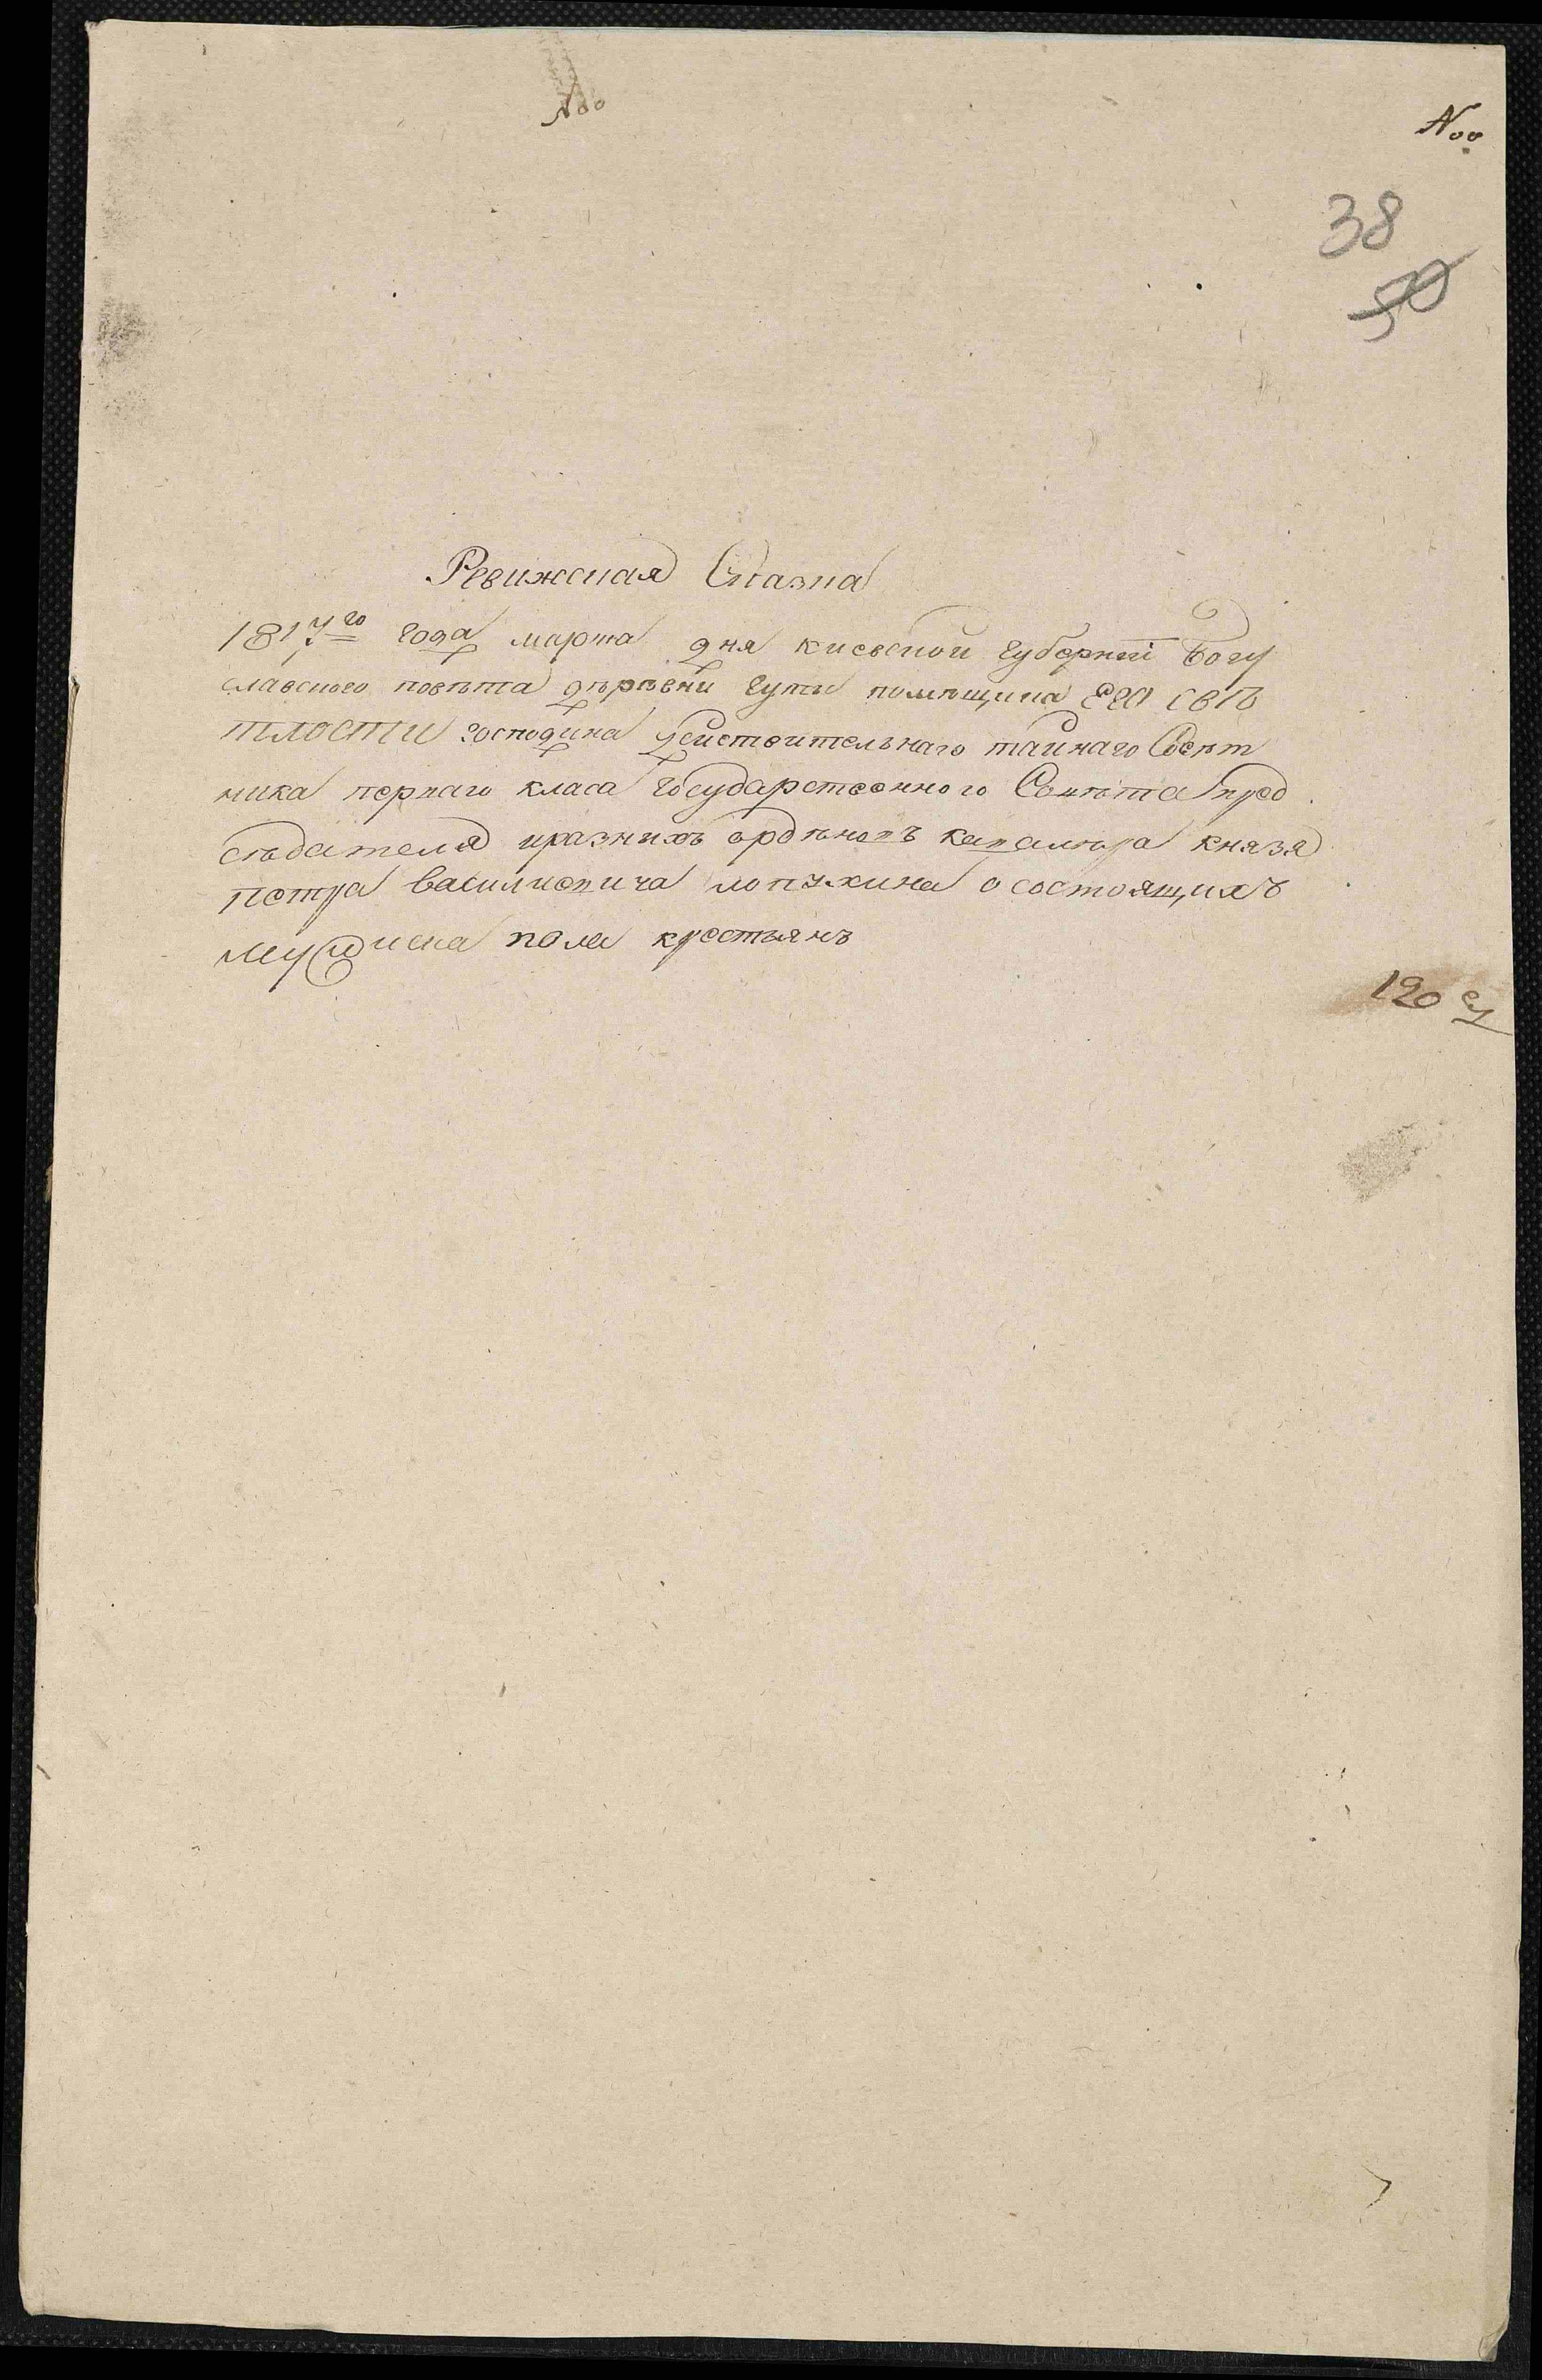 №
№
38
50
Ревижская Сказка
1817го года марта дня киевской губернїи Богу
славского повѣта дѣрѣвни Гуты помѣщика Его свѣ
тлости господина действительнаго тайнаго Совѣт
ника перваго класа государственного Совѣта пред
сѣдателя иразныхъ ордѣновъ кавалѣра князя
петра василиевича лопухина осостоящихъ
мужиска пола крестьянъ
120